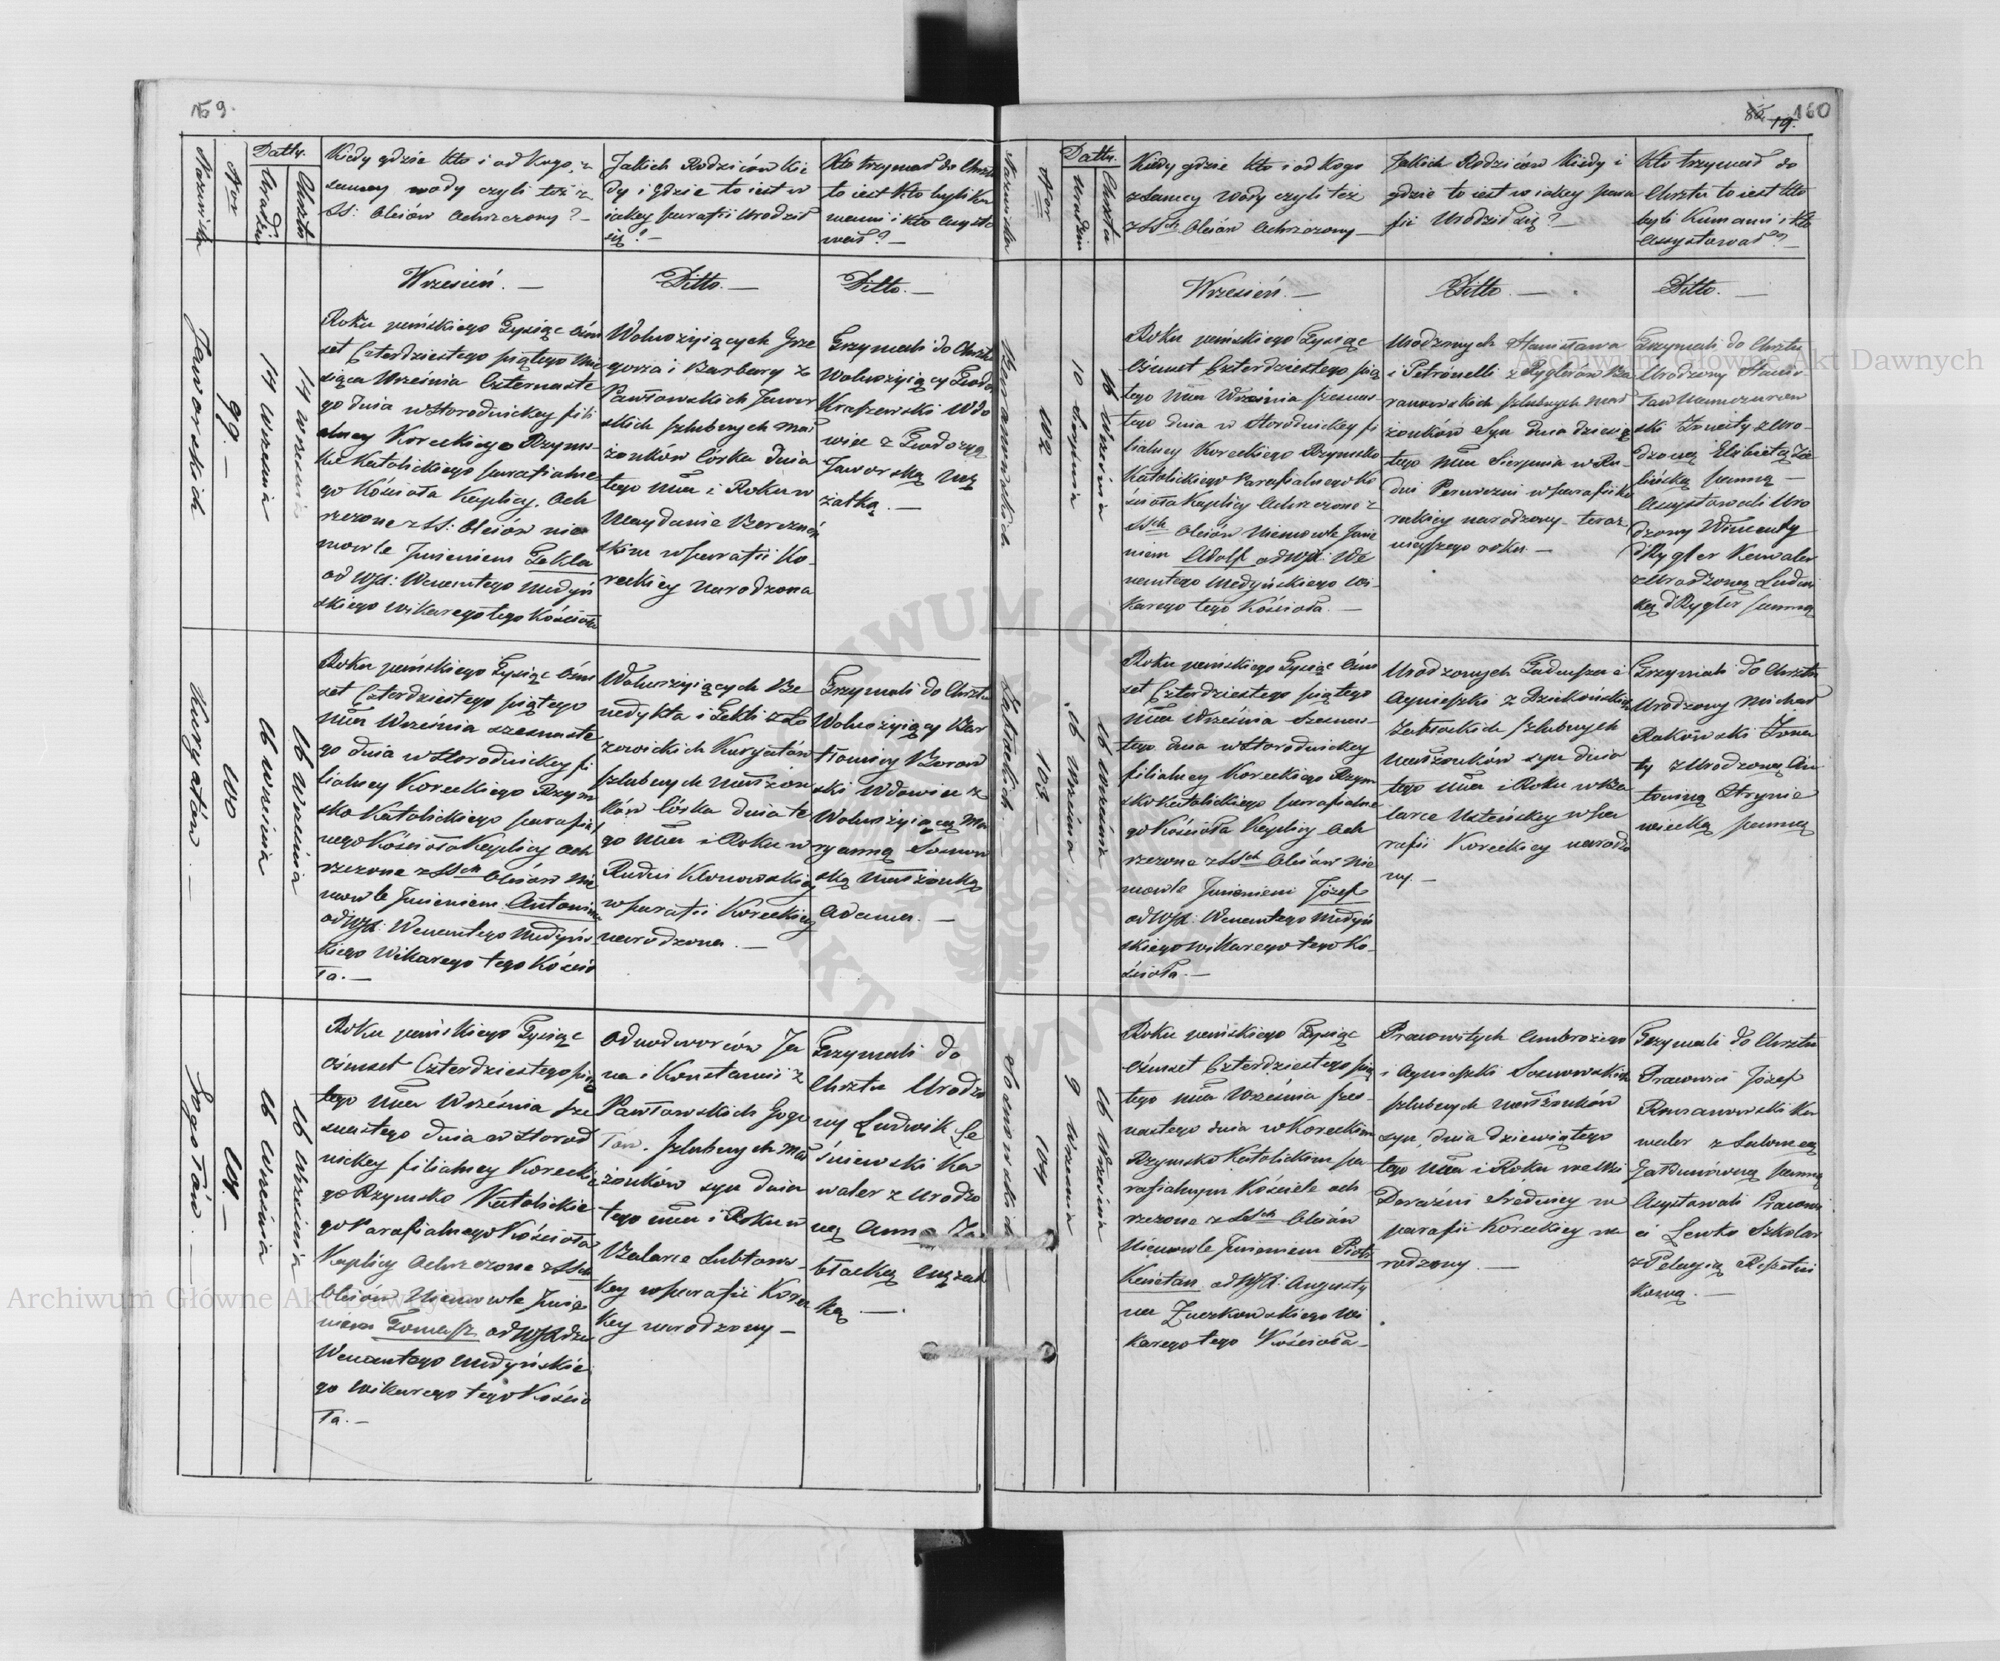 № 9.
Nazwiska
Nor
Datty.
Urodzin
Chrztu
Kiedy gdzie kto i od Kogo, z
samey wody czyli też z
SS: Oleiów Ochrzczony? —
Jakich Rodziców Kie
dy i gdzie to iest w
iakiey parafii Urodził
się? —
Kto trzymał do Chrztu
to iest kto byli Ku
mami i kto Assysto
wał? —
Wrzesień. —
Ditto. —
Ditto. —
Jaworskich
99. —
14 Wrzesnia
14 Wrzesnia
Roku pańskiego Tysiąc Óśm
set Czterdziestego piątego Mie
siąca Września Czternaste
go dnia w Horodnickey fili
alney Koreckiego Rzyms-
ko Katolickiego parafialne
go Kościoła Kaplicy, Och
rzczone z SS: Oleiów nie
mowle Jmieniem Tekla
od WJX: Wenantego Medyń
skiego Wikarego tego Kościoła
Wolnożyiących Grze
gorza i Barbary z
Pawłowskich Jawor
skich szlubnych mał
żonków Córka dnia
tego Mca i Roku w
Maydanie Berezno
skim w parafii Ko-
reckiey narodzona
Trzymali do Chrztu
Wolnożyiący Teodor
Kraszewski Wdo
wiec z Teodozyą
Jaworską Mę
żatką. —
Kuryatów. —
100
16 Wrzesnia
16 Wrzesnia
Roku pańskiego Tysiąc Óśm
set Czterdziestego piątego
Mca Września szesnaste
go dnia w Horodnickey fi
lialney Koreckiego Rzym
sko Katolickiego parafial
nego Kościoła Kaplicy Och
rzczone z SSch Oleiów nie
mowle Jmieniem Antonina
od WJX: Wenantego Medyńs
kiego Wikarego tego Kościo
ła. —
Wolnożyiących Be
nedykta i Tekli z Ło
zowickich Kuryatów
szlubnych małżon
ków Córka dnia te
go Mca i Roku w
Rudni Klonowskiey
w parafii Koreckiey
narodzona. —
Trzymali do Chrztu
Wolnożyiący Bar
tłomiey Boraw
ski Wdowiec z
Wolnożyiącą Ma
ryanną Sosnow
ską małżonką
Adama. —
Gogołów. —
101. —
16 Wrzesnia
16 Wrzesnia
Roku pańskiego Tysiąc
óśmset Czterdziestego pią
tego Mca Września sze
snastego dnia w Horod
nickey filialney Korecki
go Rzymsko Katolickie
go Parafialnego Kościoła
Kaplicy Ochrzczone z SSch
Oleiów Niemowle Jmie
niem Tomasz od WJXdza
Wenantego Medyńskie
go Wikarego tego Kościo
ła. —
Odnodworców Ja
na i Konstancii z
Pawłowskich Gogo
łów. szlubnych mał
żonków syn dnia
tego Mca i Roku w
Balarce Lubtows-
key w parafii Korec
key narodzony —
Trzymali do
Chrztu Urodzo
ny Ludwik Le
śniewski Ka
waler z Urodzo
ną Anną Ja
błocką mężat
ką. —
160
19.
Nazwiska
Nor
Datty.
Urodzin
Chrztu
Kiedy gdzie kto i od Kogo
z samey Wody czyli też
z SSch Oleiów Ochrzczony —
Jakich Rodziców Kiedy i
gdzie to iest w iakiey para
fii Urodził się? —
Kto trzymał do
Chrztu to iest kto
byli Kumami i kto
Assystował? —
Wrzesień. —
Ditto. —
Ditto. —
Baranowskich
102
10 Sierpnia
16 Wrzesnia
Roku pańskiego Tysiąc
Óśmset Czterdziestego pią
tego Mca Września szesnas-
tego dnia w Horodnickey fi
lialney Koreckiego Rzymsko
Katolickiego Parafialnego Ko
ścioła Kaplicy Ochrzczone z
SSch Oleiów Niemowle Jmie
niem Adolf od WJX: We
nantego Medyńskiego Wi-
karego tego Kościoła. —
Urodzonych Stanisława
i Petronelli z Ryglerów Ba
ranowskich szlubnych mał
żonków Syn dnia dziesią
tego Mca Sierpnia w Ru-
dni Perewozni w parafii Ko
reckiey narodzony teraz
nieyszego roku. —
Trzymali do Chrztu
Urodzony Stanis
ław
ski Żonaty z Uro-
dzoną Elżbietą
panną —
Assystowali Uro
dzony Wincenty
Rygler Kawaler
z Urodzoną Ludwi
ką Rygler panną
Żabickich
103 —
16 Wrzesnia
16 Wrzesnia
Roku pańskiego Tysiąc Óśm
set Czterdziestego piątego
Mca Września szesnas-
tego dnia w Horodnickey
filialney Koreckiego Rzym
sko Katolickiego parafialne
go Kościoła Kaplicy Och
rzczone z SSch Oleiów nie
mowle Jmieniem Józef
od WJX: Wenantego Medyń
skiego Wikarego tego Ko-
ścioła. —
Urodzonych Tadeusza i
Agnieszki z Dziekońskich
szlubnych
małżonków syn dnia
tego Mca i Roku w Ba
larce Usteńskey w pa
rafii Koreckiey narodzo
ny. —
Trzymali do Chrztu
Urodzony Michał
Rakowski Żona
ty z Urodzoną An
toniną Strynie
wiecką panną
Sosnowskich —
104
9 Wrzesnia
16 Wrzesnia
Roku pańskiego Tysiąc
óśmset Czterdziestego pią
tego Mca Września szes
nastego dnia w Koreckim
Rzymsko Katolickim pa
rafialnym Kościele och
rzczone z SSch Oleiów
Niemowle Jmieniem Piotr
Kaietan od WJX: Augusty
na Żuczkowskiego Wi
karego tego Kościoła —
Pracowitych Ambrożego
i Agnieszki Sosnowskich
szlubnych małżonków
syn, dnia dziewiątego
tego Mca i Roku we Wsi
Derażni Średniey w
parafii Koreckiey na
rodzony. —
Trzymali do Chrztu
Pracowici Józef
Romanowski Ka
waler z Salomeą
panną
Assystowali Pracowi
ci Lewko Szkolar
z Pelagią Reszetni
kową. —
Archiwum Główne Akt Dawnych
Archiwum Główne Akt Dawnych
ARCHIWUM GŁÓWNE AKT DAWNYCH